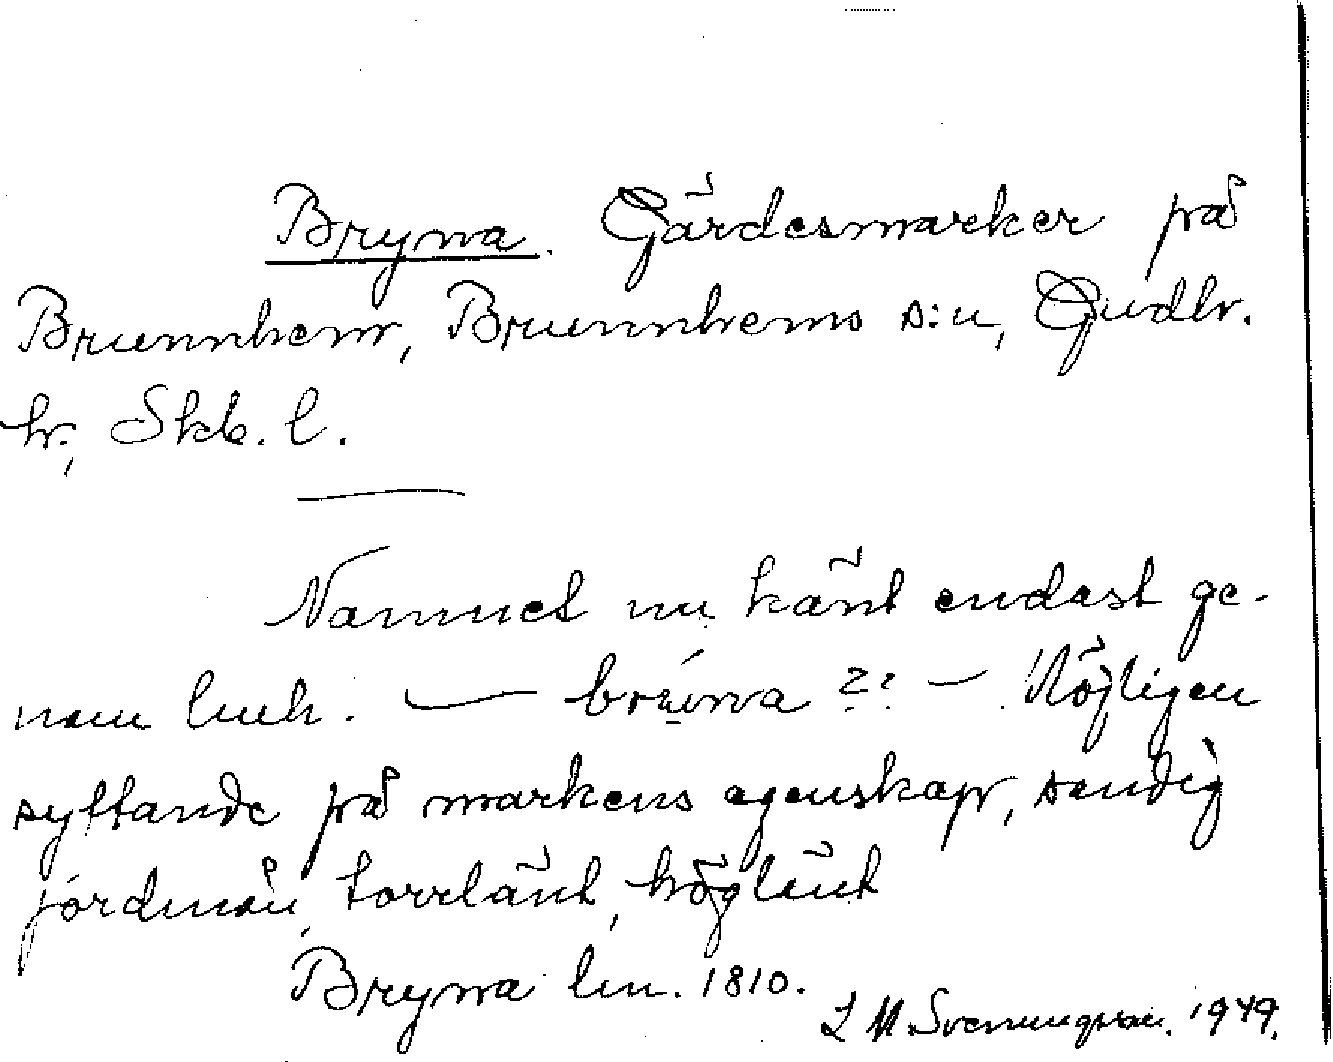 Bryna. Gärdesmarker på
Brunnhem, Brunnhems s:n, Gudh.
h., Skb. l.
Namnet nu känt endast ge-
nom lmh. — — Möjligen
syftande på markens egenskap, sandig
jordmån, torrlänt, höglänt
Bryna lm. 1810.
L M Svenungsson. 1949.